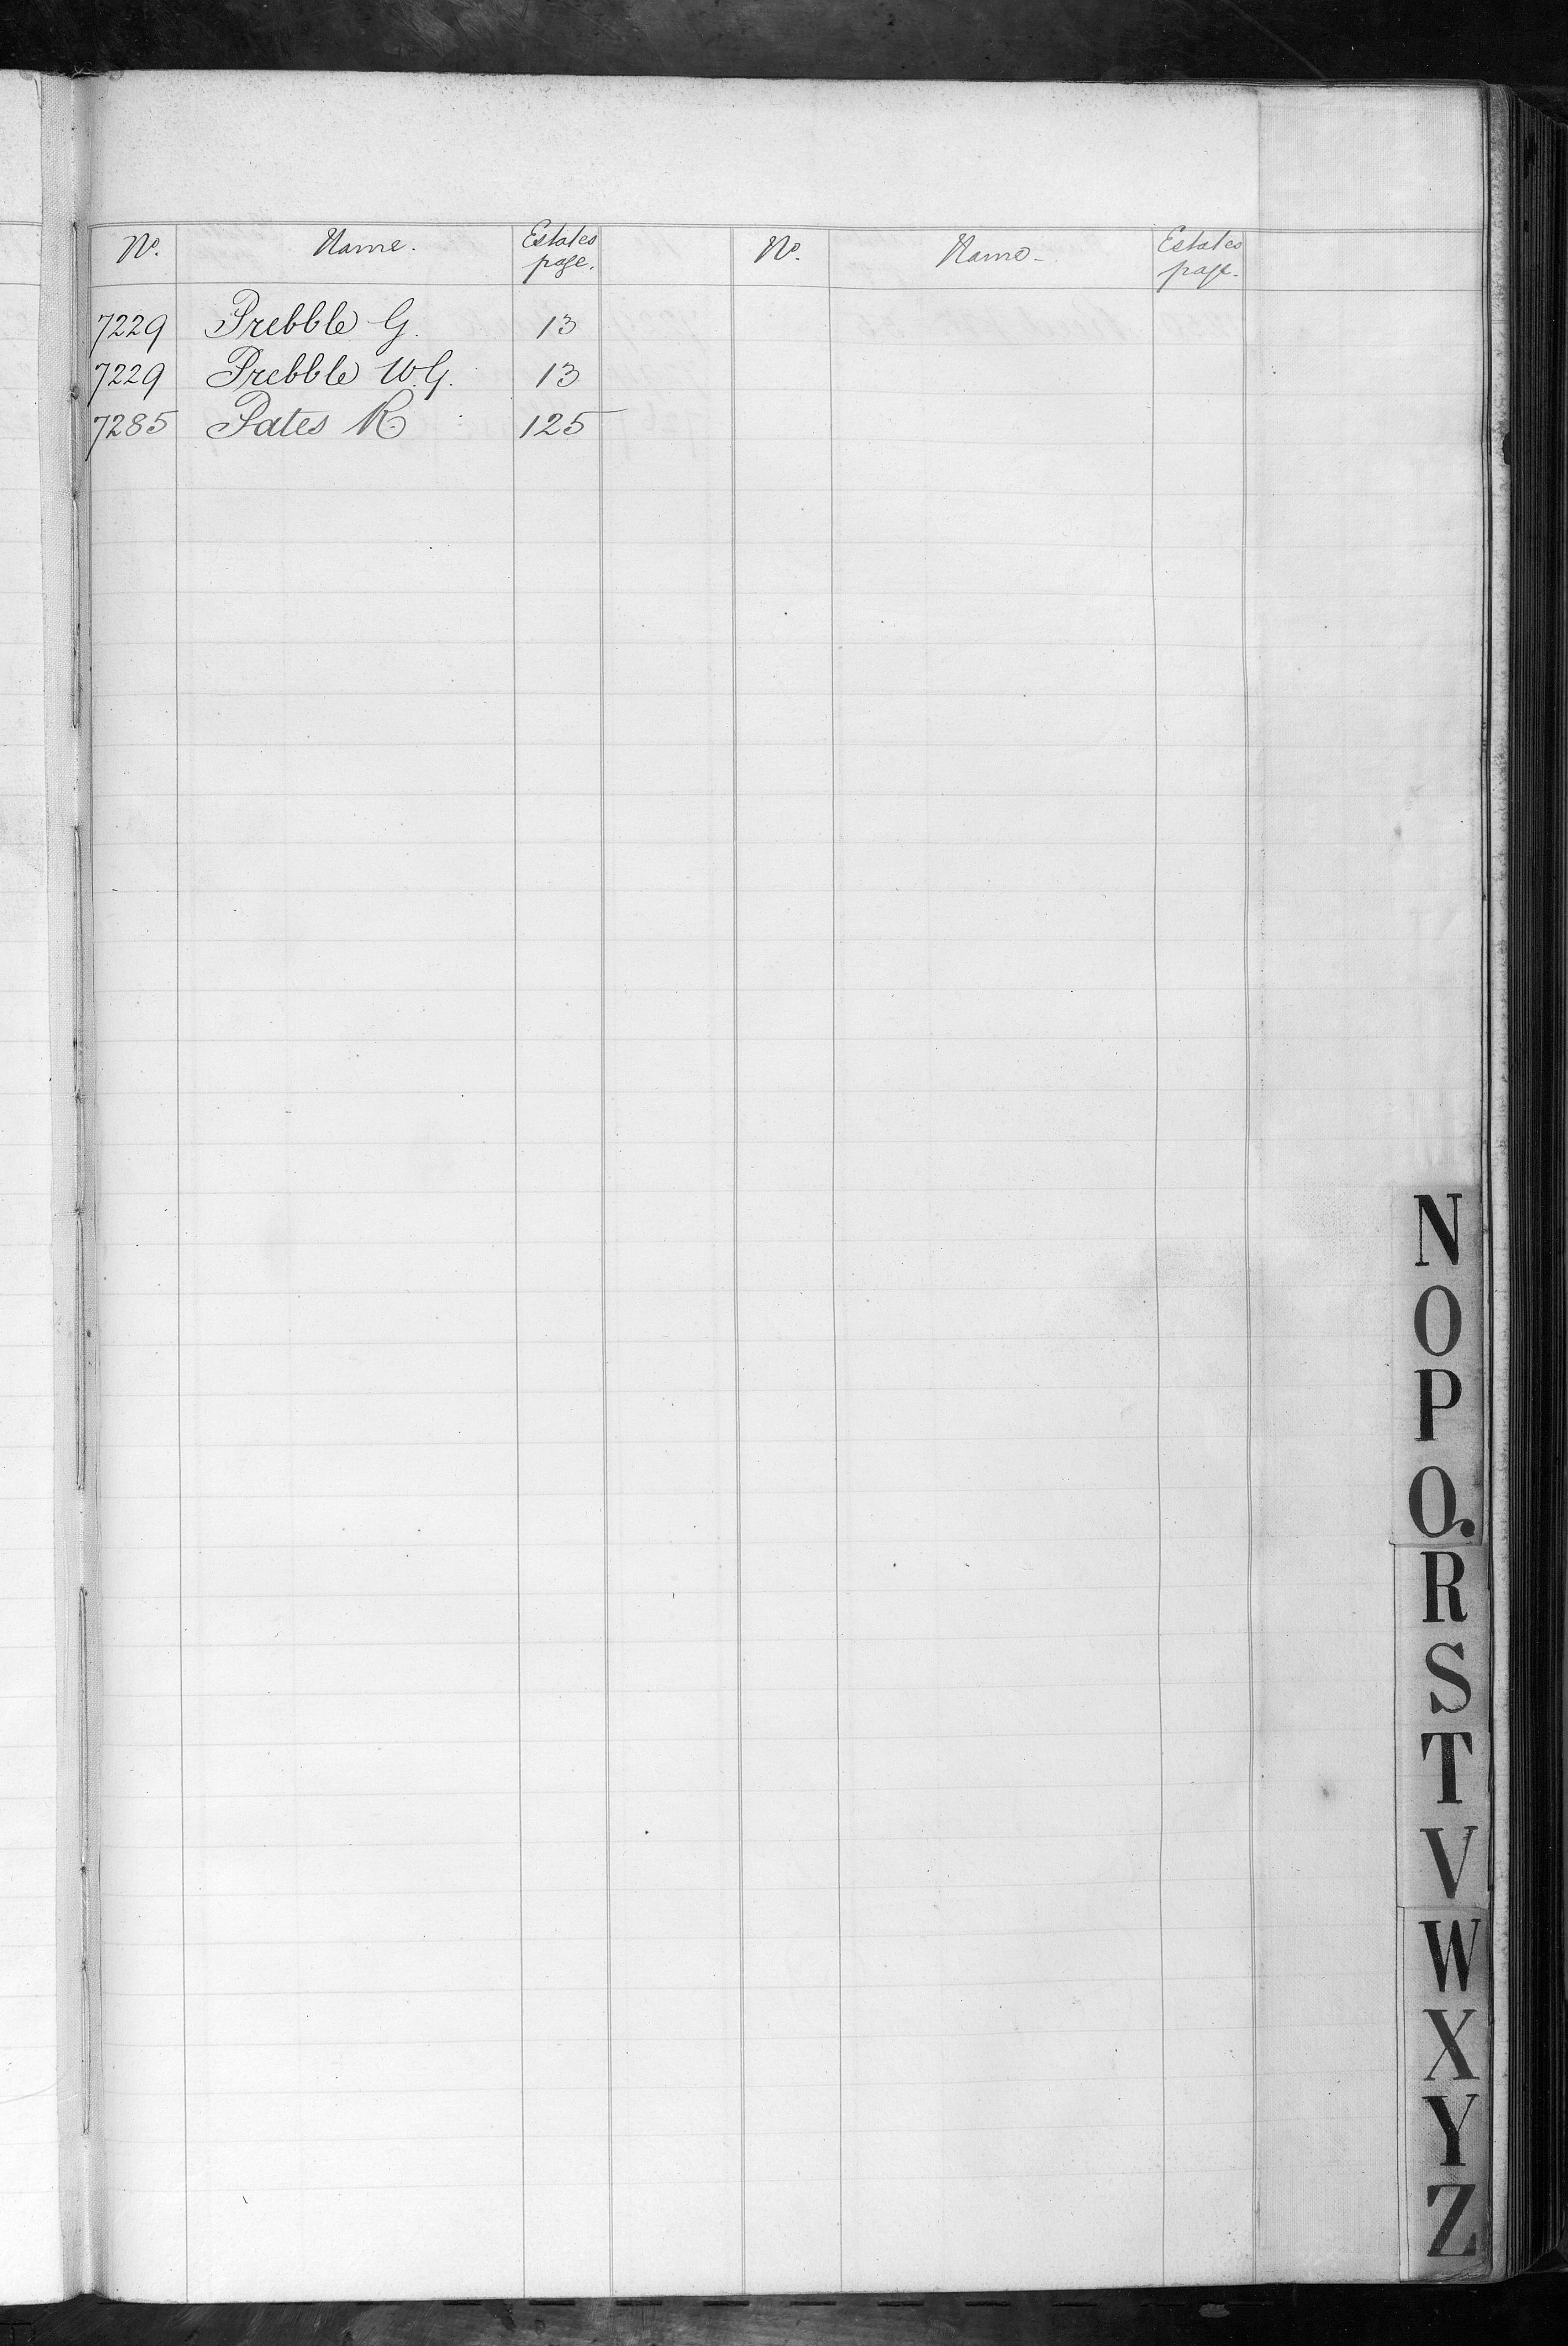 No. Name. Estates page. No. Name Estates page.
7229 Prebble G. 13
7229 Prebble W.G. 13
7285 Pates R 125
N
O
P
Q
R
S
T
V
W
X
Y
Z